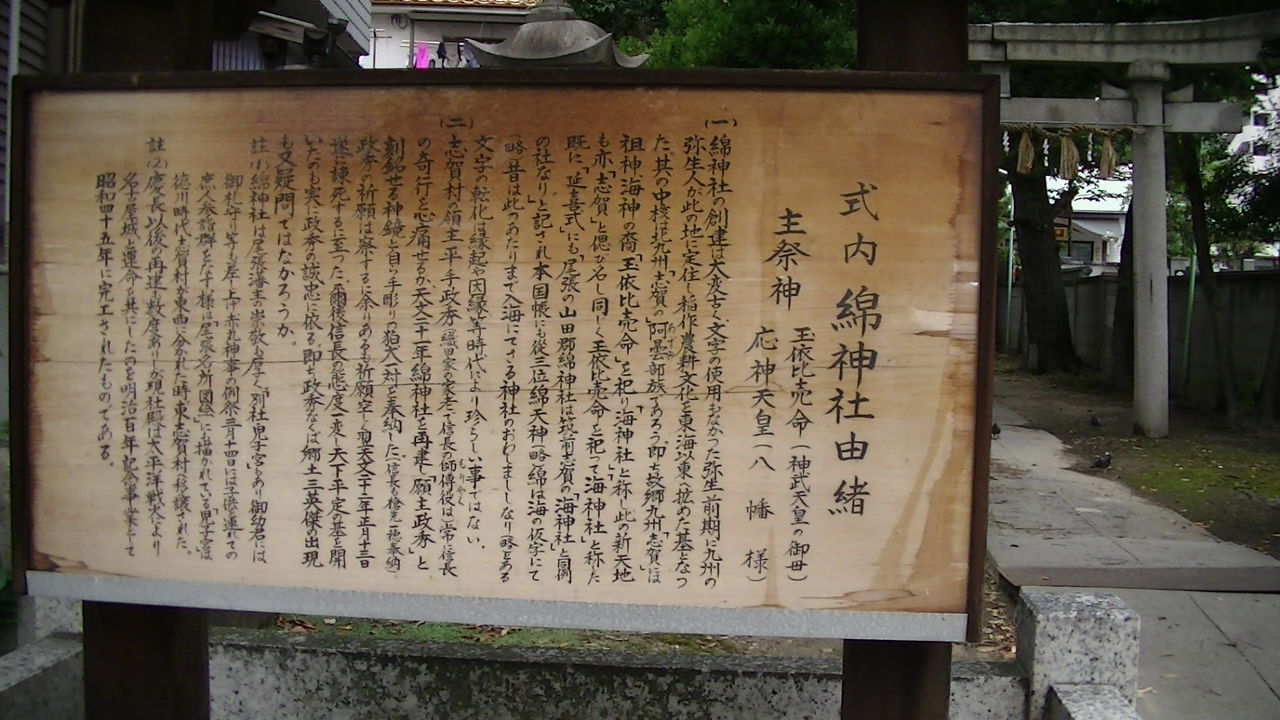 式内 綿神社由緒
主祭神
玉依比売命(神武天皇の御母)
応神天皇(八幡様)
(一)
綿神社の創建は大変古く文字の使用おなかった弥生前前期に九州の
弥生人が此の地に定住し稲作農耕文化を東海以東へ拡めた基となつ
た、其の中核は北九州志賀の「阿曇部族」であろう、即ち故郷九州「志賀」には
祖神海神の裔「玉依比売命」を祀り「海神社」と称し此の新天地
も亦「志賀」と偲び名し同じく玉依比売命を祀って「海神社」と称た
既に「延喜式」にも「尾張の山田郡綿神社は筑前志賀の「海神社」と同例
の社なり」と記され本国帳にも従三位綿天神(略)綿は海の仮字にて
(略)昔は此のあたりまで入海にてさる神社のおわしましなり(略)とある
文字の転化は縁起や因縁等時代により珍らしい事ではない、
(二)
志賀村の領主平手政秀(織田家の家老で信長の師傅役)は常に信長
の奇行を心痛せるか天文二十一年綿神社を再建し「願主政秀」と
刻銘せる神鏡と自ら手彫りの狛犬一対を奉納した、信長も
政秀の祈願は察するに余りあるも祈願空しく翌天文二十二年正月十三日
遂に諌死するに至った、爾後信長の態度一変し天下平定の基を開
いたのも実に政秀の誠忠に依る、即ち政秀なくば郷土三英傑の出現
も又疑問ではなかろうか。
註(1)綿神社は尾張藩主の崇敬も厚く「別社児子宮」もあり御幼君には
御礼守り等も差し上げ赤丸神事の例祭三月十四日には子供を連れての
庶人参詣群をなす様は「尾張名所図絵」にも描かれている児子宮は
徳川時代志賀村が東西に分かれた時東志賀村へ移譲された。
註(2)慶長以後の再建は数度あり、現社殿は太平洋戦火により
名古屋城と運命を共にしたのを明治百年記念事業として
昭和四十五年に完工されたものである。